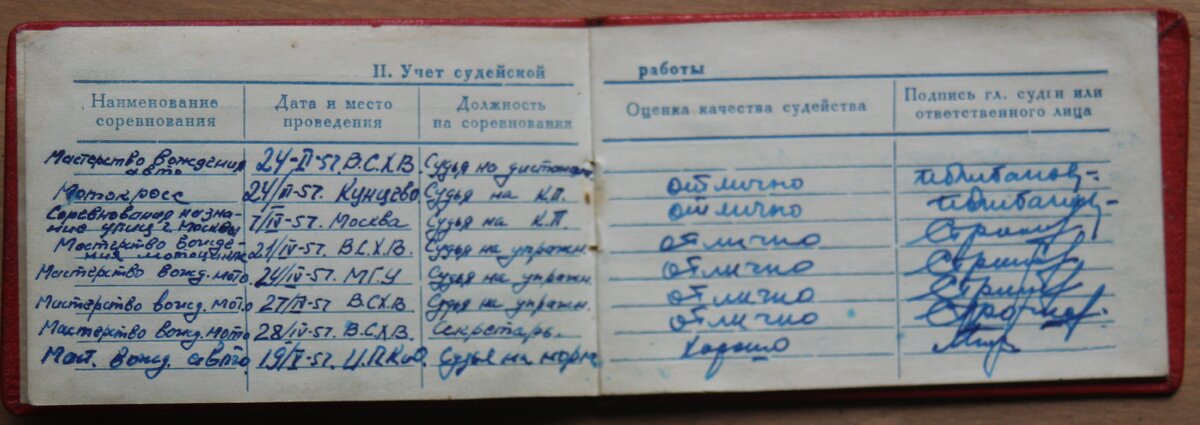 II. Учет судейской работы
Наименование соревнования
Дата и место проведения
Должность на соревновании
Оценка качества судейства
Подпись гл. судьи или ответственного лица
Мастерство вождения авто 24-II-57. В.С.Х.В. Судья на
Мотокросс 24/III-57. Кунцево Судья на К.П. отлично
Соревнования на знание улиц г. Москвы 7/IV-57. Москва Судья на К.П. отлично
Мастерство вождения 21/IV-57. В.С.Х.В. Судья на упражн. отлично
Мастерство вожд. мото 24/IV-57. МГУ Судья на упражн. отлично
Мастерство вожд. мото 27/IV-57 В.С.Х.В. Судья на упражн. отлично
Мастерство вожд. мото 28/IV-57. В.С.Х.В. Секретарь. отлично
Маст. вожд. авто. 19/V-57. Ц.П.КиО. Судья на хорошо